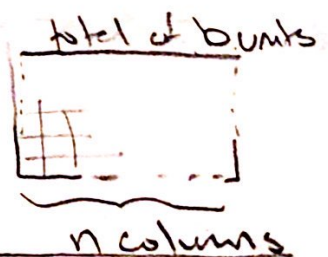 total of b units
n columns